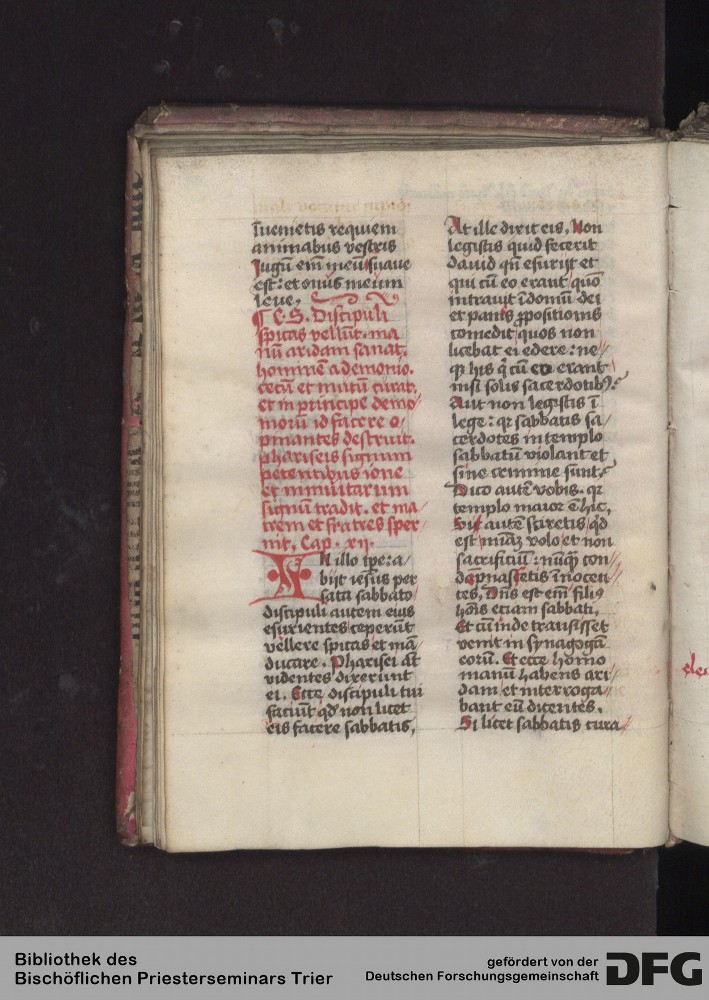 īuenietis requiem
animabus vestris
Jugū em̄ meū suaue
est: et onus meum
leue,
¶ C. S. Discipuli
spicas vellūt. ma
nū aridam sanat.
hominē a demonio.
cecū et mutū curat.
et in principe demo/
moriū id facere o/
pinantes destruit.
phariseis signum
petentibus ione
et niniuitarum
signū tradit. et ma/
trem et fratres sper
nit. Cap. xij.
IN illo tp̄re: a/
bijt iesus per
sata sabbato
discipuli autem eius
esurientes ceperūt
vellere spicas et mā/
ducare. Pharisei āt
videntes dixerunt
ei. Ecce discipuli tui
faciūt qd̄ non licet
eis facere sabbatis,
At ille dixit eis, Non
legistis quid fecerit
dauid qn̄ esurijt et
qui cū eo erant quō
intrauit ī domū dei
et panis ꝓpositionis
comedit quos non
licebat ei edere: ne/
qꝫ his q̄ cū eo erant
nisi solis sacerdotibꝫ?
Aut non legistis ī
lege: qꝛ sabbatis sa/
cerdotes in templo
sabbatū violant et
sine crimine sunt?
Dico autē vobis. qꝛ
templo maior ē hic,
Si autē sciretis qd̄
est miāꝫ volo et non
sacrificiū: nūqꝫ con//
dāpnassetis īnocen//
tes, Dn̄s est em̄ filiꝰ
hoīs etiam sabbati,
Et cū inde transisset
venit in synagogā
eorū. Et ecce homo
manū habens ari//
dam et interroga/
bant eū dicentes.
Si licet sabbatis cura//
Bibliothek des
Bischöflichen Priesterseminars Trier
gefördert von der
Deutschen Forschungsgemeinschaft
DFG